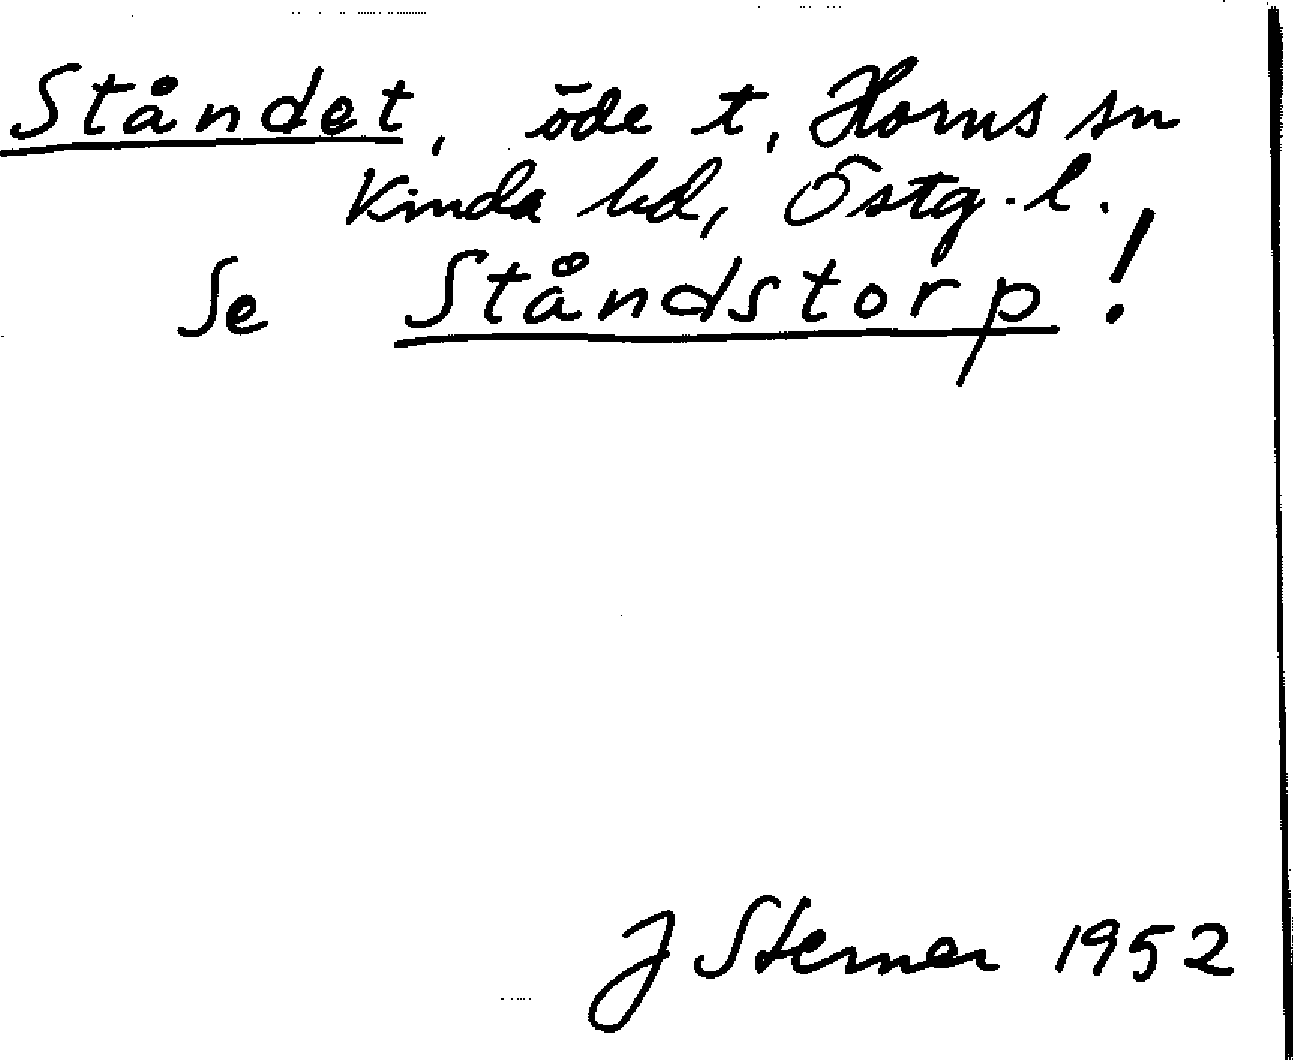 Ståndet, öde t, Horns sn
Kinda hd, Östg.l.
Se Ståndstorp!
J Sterner 1952